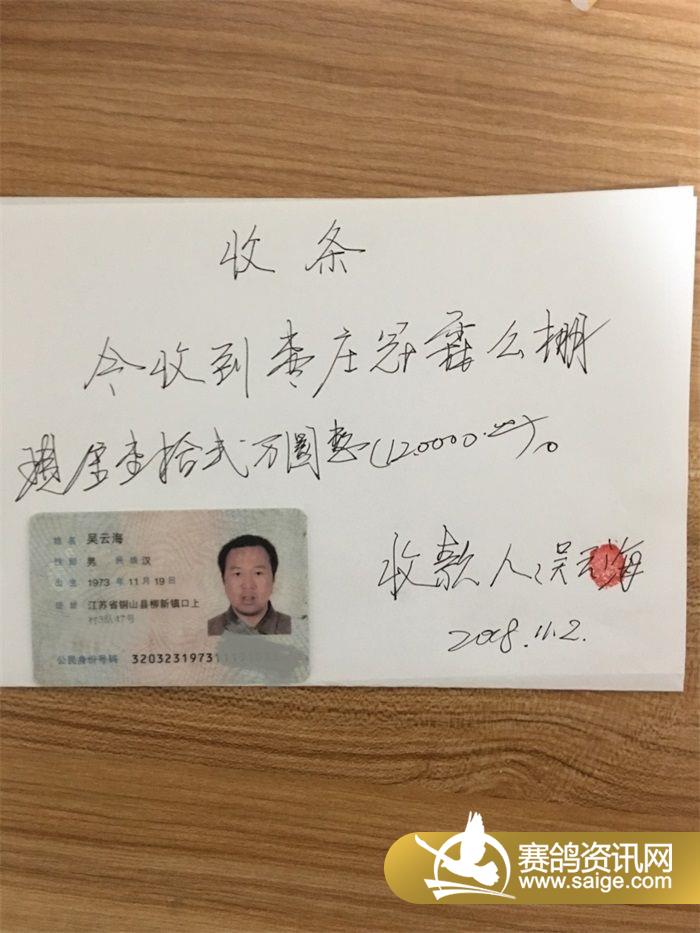 收条
今收到枣庄冠霖公棚
现金壹拾贰万圆整(120000.00)。
收款人:吴云海
2018.11.2.
姓名 吴云海
性别 男 民族 汉
出生 1973 年 11 月 19 日
住址 江苏省铜山县柳新镇口上
村3队47号
公民身份号码 3203231973111
赛鸽资讯网
www.saige.com